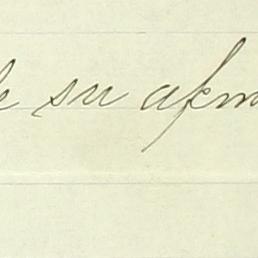 de su afm